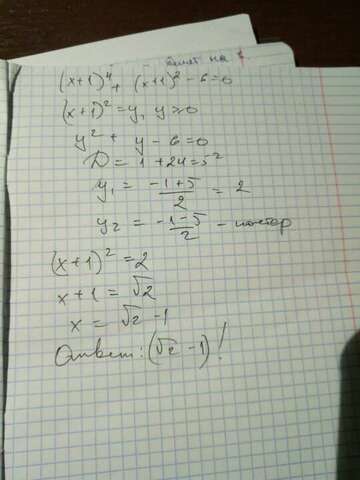 на 1.
(x+1)⁴ + (x+1)² - 6 = 0
(x+1)² = y, y ≥ 0
y² + y - 6 = 0
D = 1 + 24 = 5²
y₁ = (-1+5)/2 = 2
y₂ = (-1-5)/2 -
(x+1)² = 2
x+1 = √2
x = √2 - 1
Ответ: (√2 - 1)!